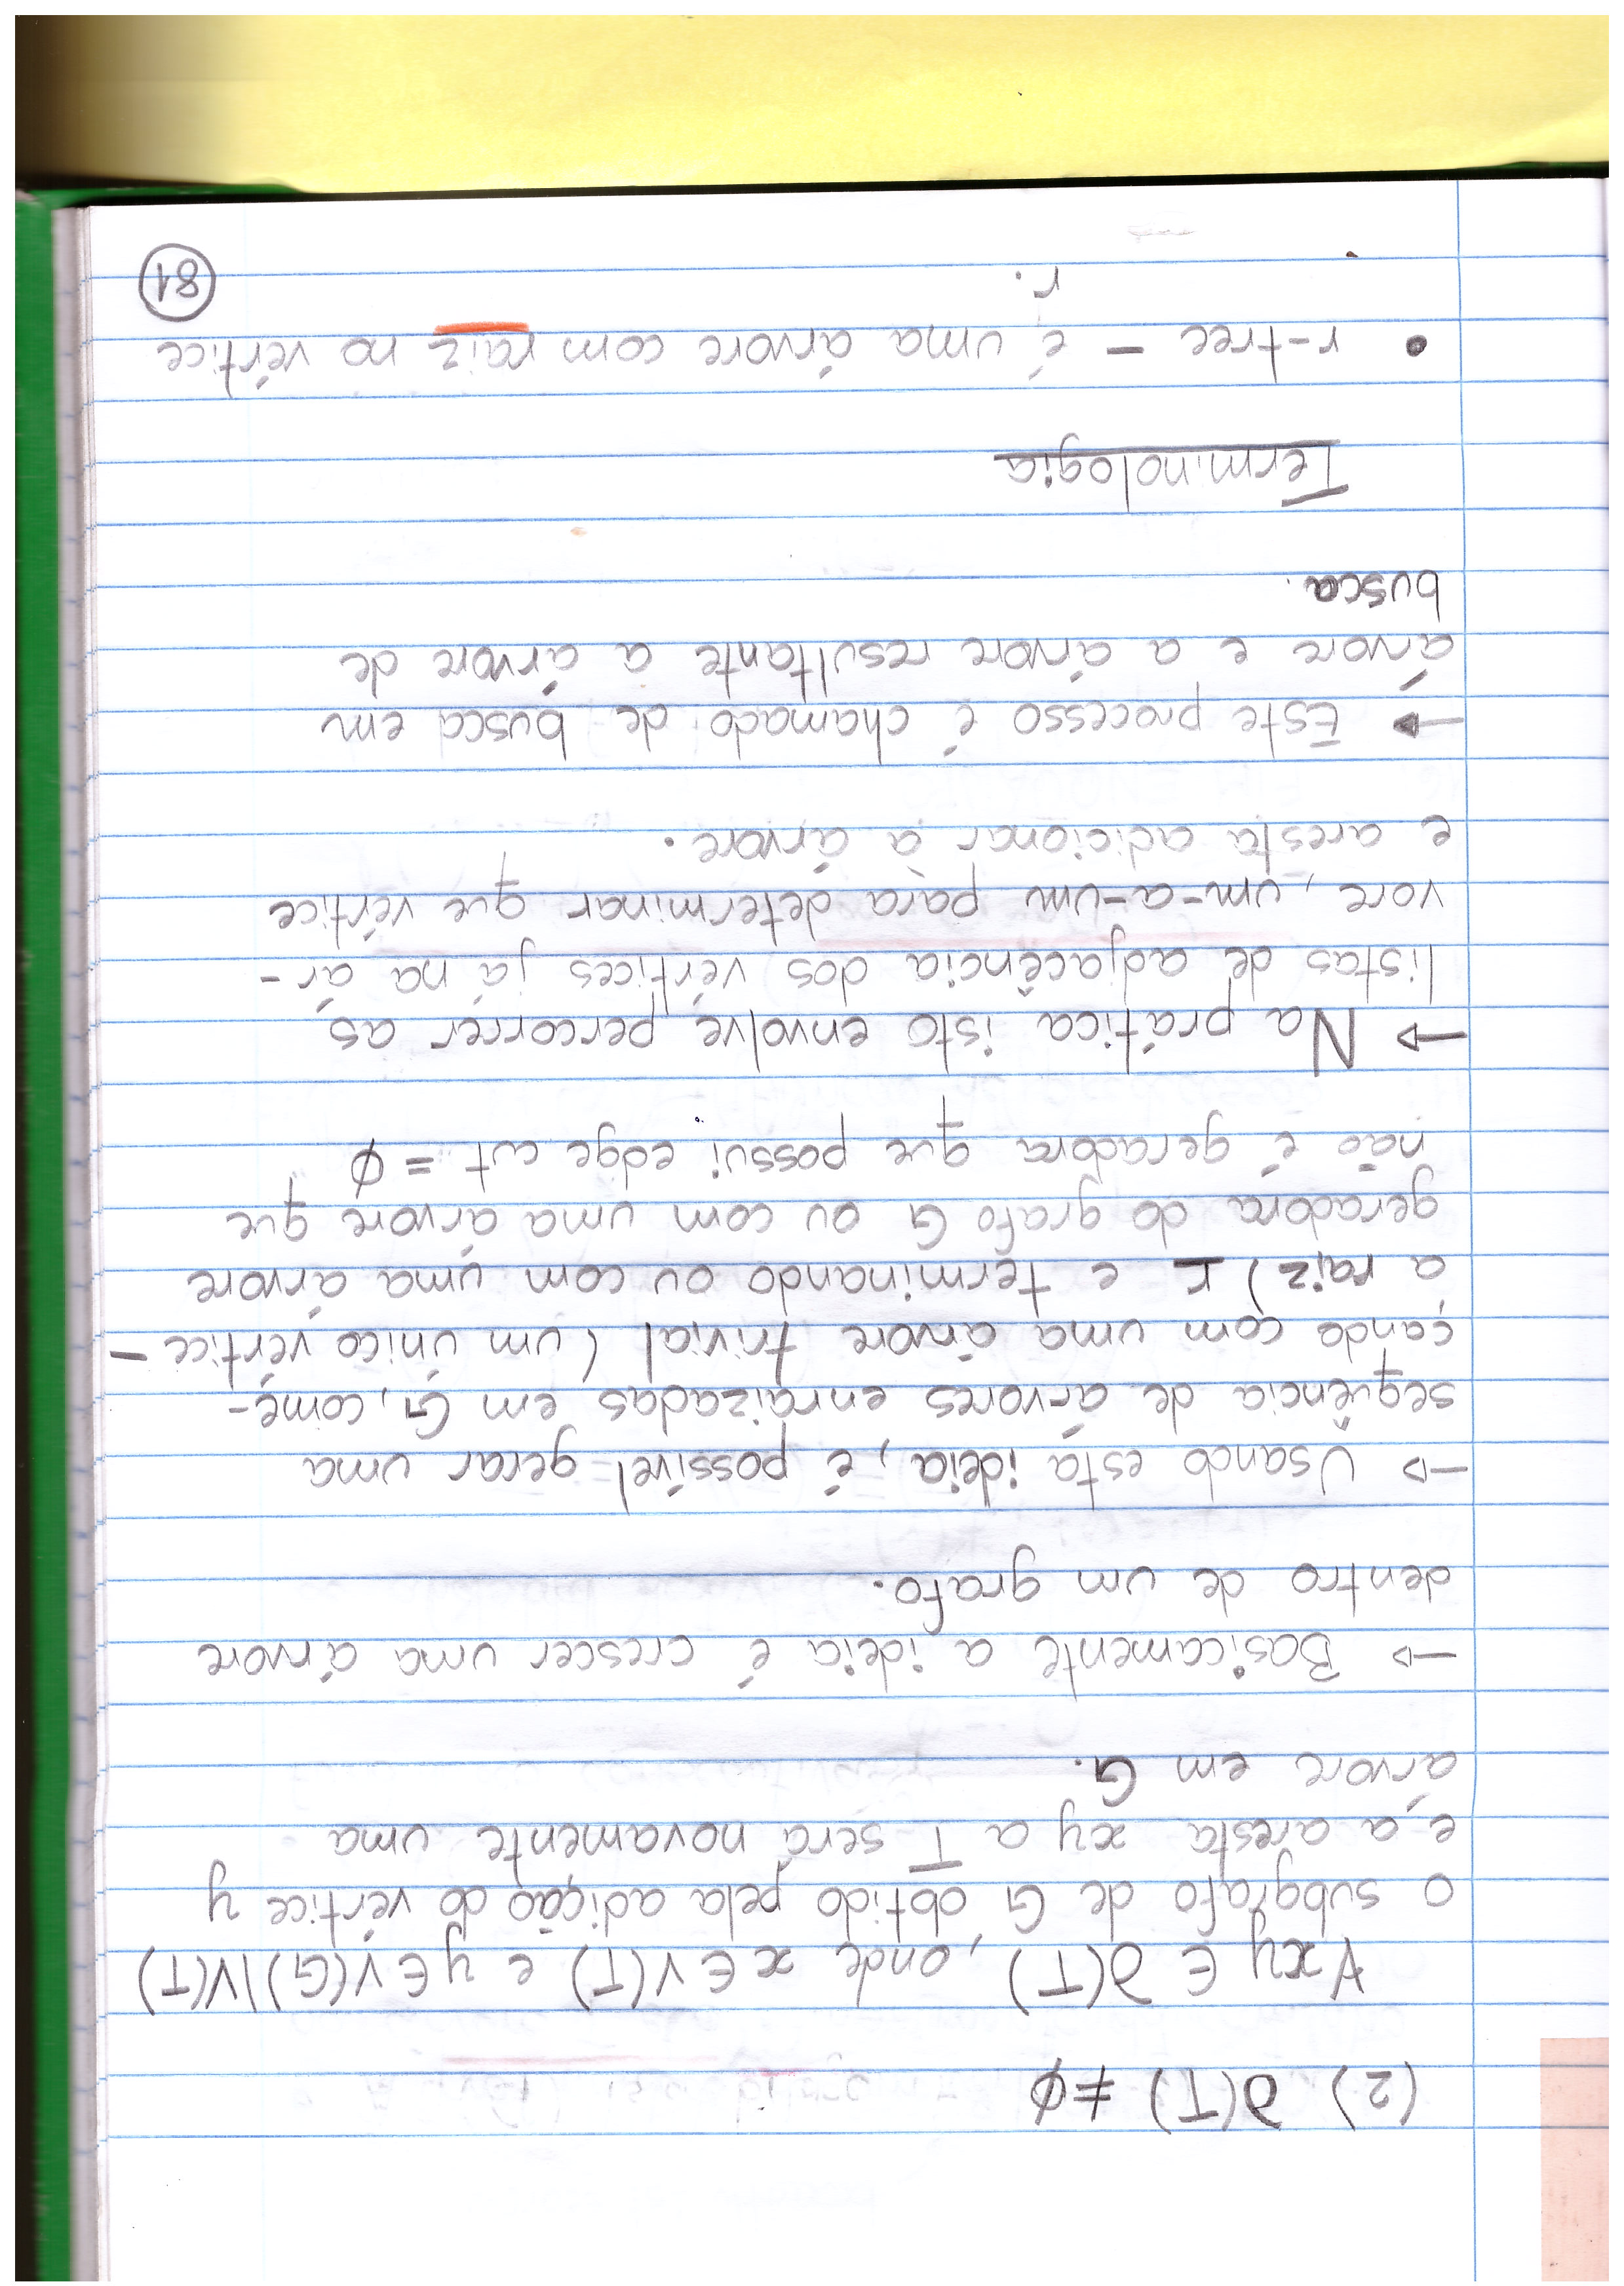 (2) ∂(T) ≠ ∅
∀xy ∈ ∂(T), onde x ∈ V(T) e y ∈ V(G)\V(T)
o subgrafo de G obtido pela adição do vértice y
e a aresta xy a T será novamente uma
árvore em G.
→ Basicamente a ideia é crescer uma árvore
dentro de um grafo.
→ Usando esta ideia, é possível gerar uma
sequência de árvores enraizadas em G, come-
çando com uma árvore trivial (um único vértice -
a raiz) r e terminando ou com uma árvore
geradora do grafo G ou com uma árvore que
não é geradora que possui edge cut = ∅
→ Na prática isto envolve percorrer as
listas de adjacência dos vértices já na ár-
vore, um-a-um para determinar que vértice
e aresta adicionar à árvore.
→ Este processo é chamado de busca em
árvore e a árvore resultante a árvore de
busca.
Terminologia
• r-tree - é uma árvore com raiz no vértice
r.
81